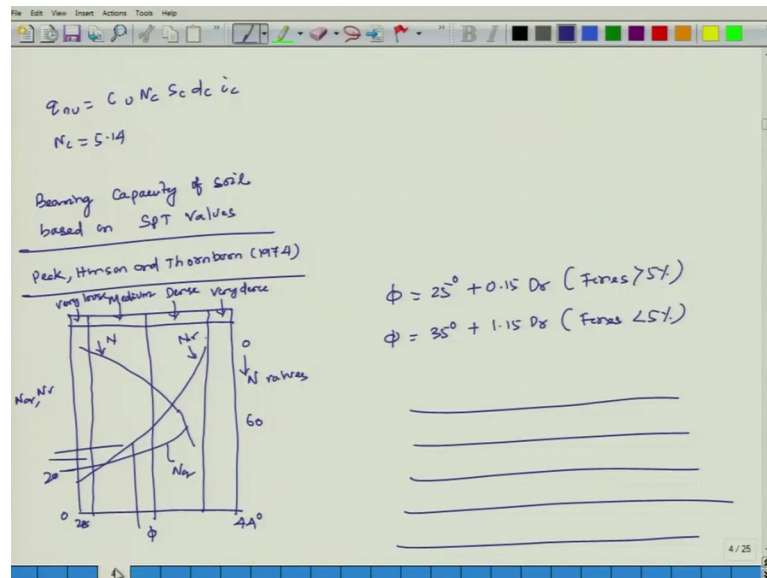 File Edit View Insert Actions Tools Help
qnu = Cu Nc Sc dc ic
Nc = 5.14
Bearing Capacity of soil
based on SPT values
Peck, Hanson and Thornborn (1974)
very loose Medium Dense Very dense
N
Nr
0
N values
Nq, Nr
60
20
Nq
0 28 φ 44°
φ = 25° + 0.15 Dr (Fines > 5%)
φ = 35° + 1.15 Dr (Fines < 5%)
4 / 25